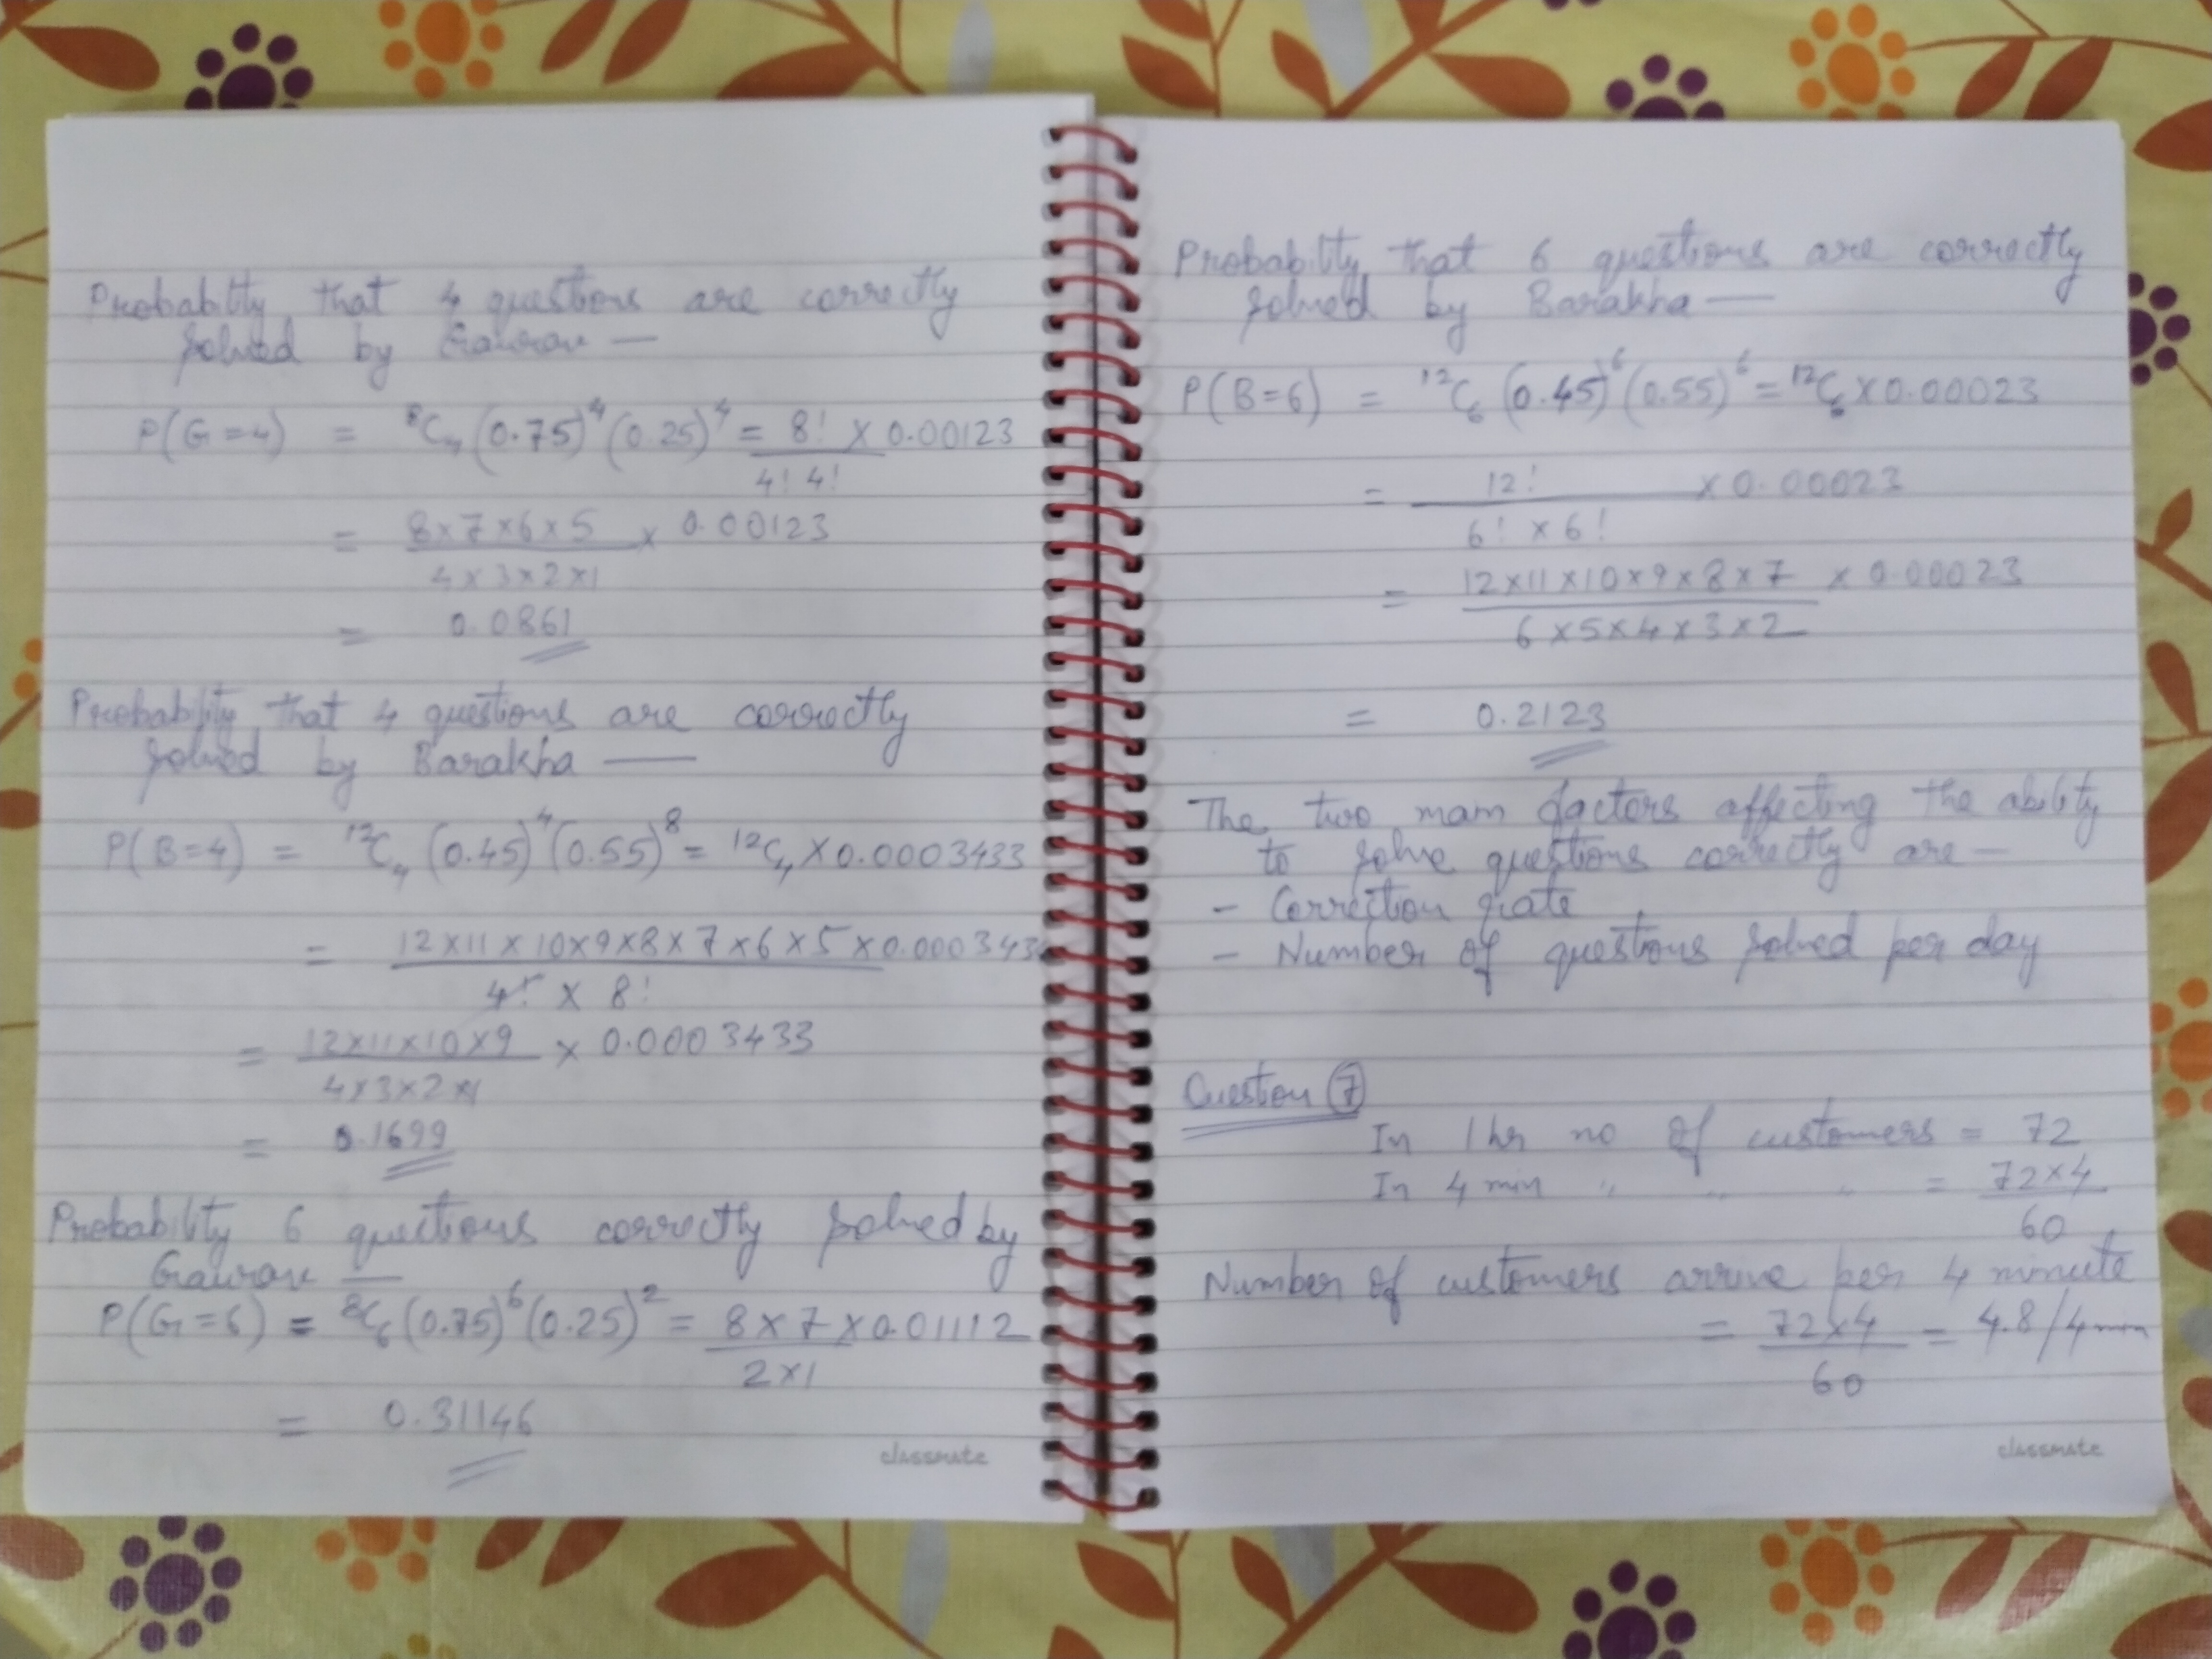 Probability that 4 questions are correctly
solved by Gaurav —
P(G=4) = ⁸C₄ (0.75)⁴ (0.25)⁴ = 8! × 0.00123
4! 4!
= 8×7×6×5 × 0.00123
4×3×2×1
= 0.0861
Probability that 4 questions are correctly
solved by Barakha —
P(B=4) = ¹²C₄ (0.45)⁴ (0.55)⁸ = ¹²C₄ × 0.0003433
= 12×11×10×9×8×7×6×5 × 0.000343
4! × 8!
= 12×11×10×9 × 0.0003433
4×3×2×1
= 0.1699
Probability 6 questions correctly solved by
Gaurav —
P(G=6) = ⁸C₆ (0.75)⁶ (0.25)² = 8×7 × 0.01112
2×1
= 0.31146
classmate
Probability that 6 questions are correctly
solved by Barakha —
P(B=6) = ¹²C₆ (0.45)⁶ (0.55)⁶ = ¹²C₆ × 0.00023
= 12! × 0.00023
6! × 6!
= 12×11×10×9×8×7 × 0.00023
6×5×4×3×2
= 0.2123
The two main factors affecting the ability
to solve questions correctly are —
- Correction rate
- Number of questions solved per day
Question 7
In 1hr no of customers = 72
In 4 min " " " = 72×4
60
Number of customers arrive per 4 minute
= 72×4 = 4.8/4min
60
classmate